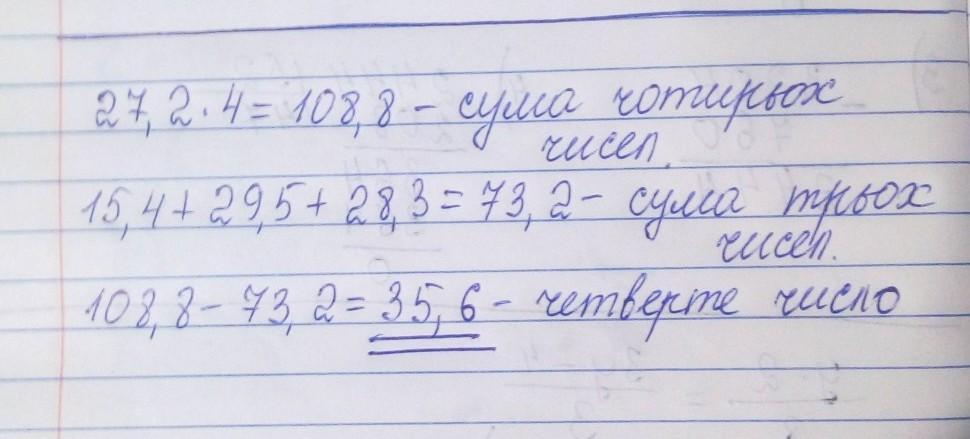 27,2·4=108,8 - сума чотирьох
чисел.
15,4+29,5+28,3=73,2- сума трьох
чисел.
108,8-73,2=35,6- четверте число